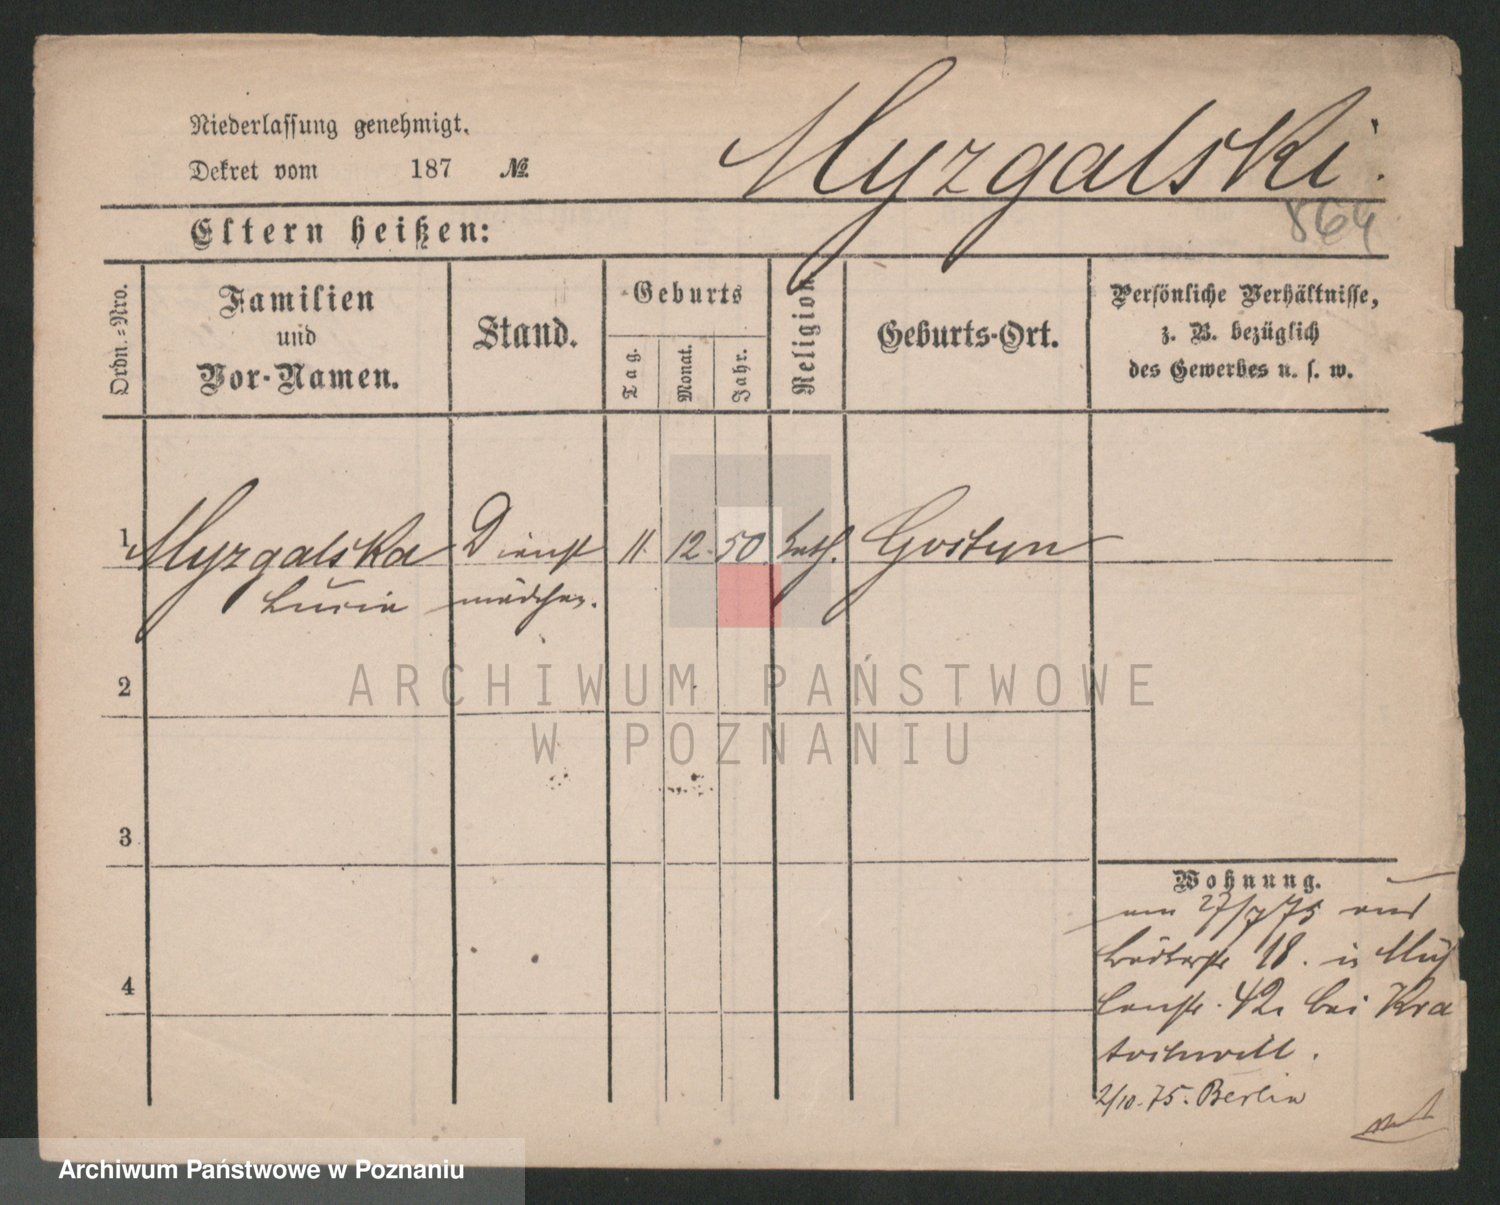 Niederlassung genehmigt.
Dekret vom 187 №
Myzgalski.
864
Eltern heißen:
Ordn.-Nro.
Familien
und
Vor-Namen.
Stand.
Geburts
Tag.
Monat.
Jahr.
Religion
Geburts-Ort.
Persönliche Verhältnisse,
z. B. bezüglich
des Gewerbes u. s. w.
1 Myzgalska Dienst 11. 12. 50. kath. Gostyn
Lucie mädchen.
2
ARCHIWUM PAŃSTWOWE
W POZNANIU
3
Wohnung.
am 27/7 75 aus
18. in Müh
lenstr. 42. bei Kra
tochwill.
4
2/10. 75. Berlin
Archiwum Państwowe w Poznaniu